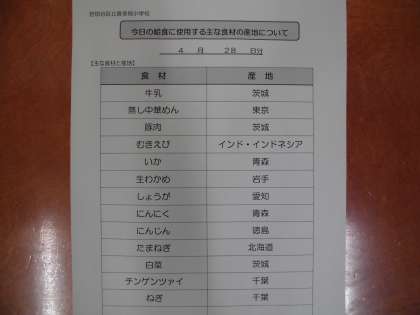 世田谷区立喜多見小学校
今日の給食に使用する主な食材の産地について
4 月 28 日分
【主な食材と産地】
食 材 産 地
牛乳 茨城
蒸し中華めん 東京
豚肉 茨城
むきえび インド・インドネシア
いか 青森
生わかめ 岩手
しょうが 愛知
にんにく 青森
にんじん 徳島
たまねぎ 北海道
白菜 茨城
チンゲンツァイ 千葉
ねぎ 千葉